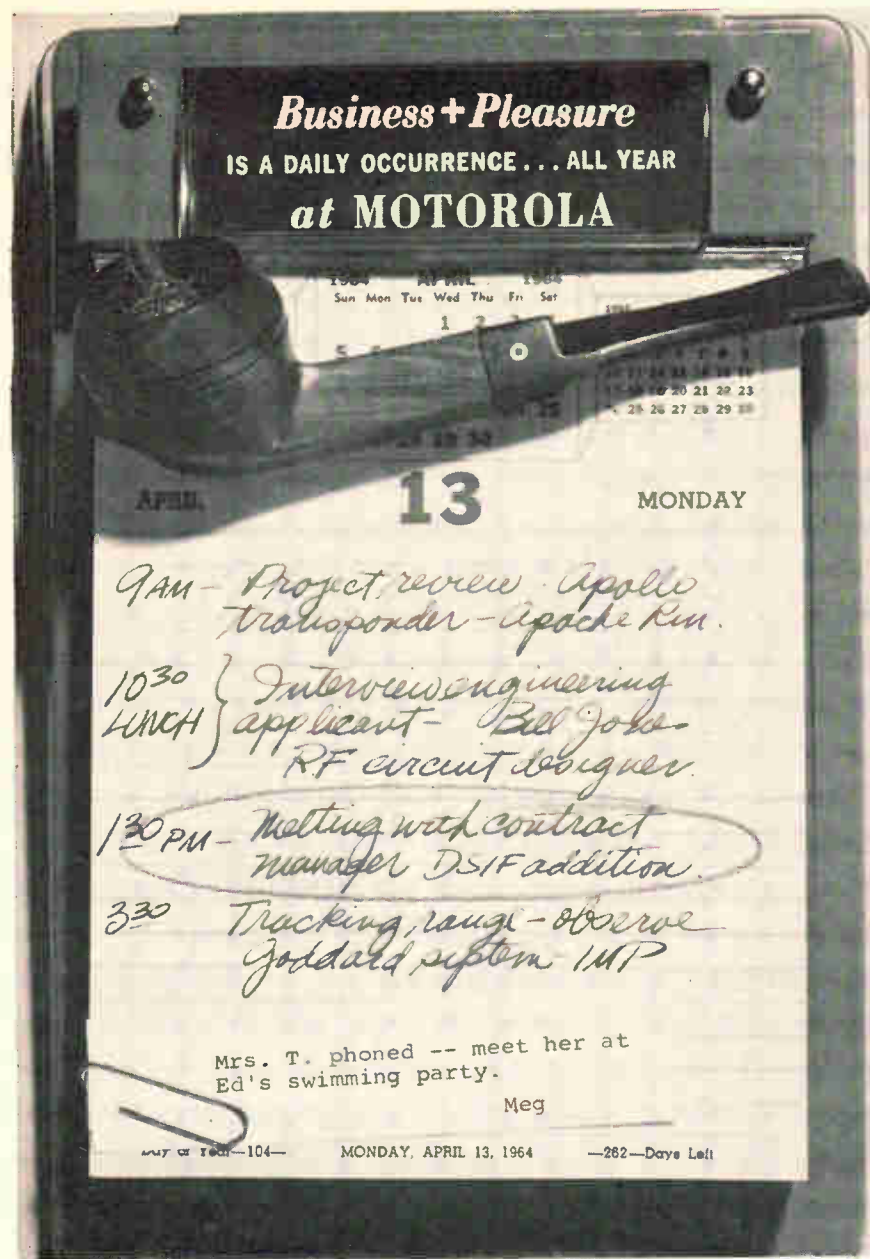 Business + Pleasure
IS A DAILY OCCURRENCE... ALL YEAR
at MOTOROLA
1964 APRIL 1964
Sun Mon Tue Wed Thu Fri Sat
1 2 3
5
25
20 21 22 23
25 26 27 28 29
APRIL 13 MONDAY
9AM - Project review Apollo
transponder - Apache Rm.
10 30 Interview engineering
LUNCH applicant - Bill
RF circuit designer
1 30 PM - Meeting with contract
manager DSIF addition.
3 30 Tracking range - observe
Goddard system IMP
Mrs. T. phoned -- meet her at
Ed's swimming party.
Meg
Day of Year—104— MONDAY, APRIL 13, 1964 —262—Days Left